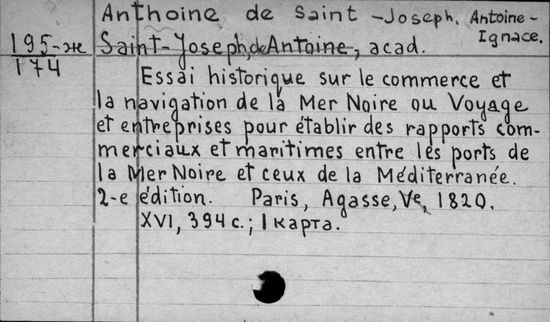 Anthoine de Saint-Joseph, Antoine-
Ignace.
195-ж
174
Saint-Joseph, de Antoine, acad.
Essai historique sur le commerce et
la navigation de la Mer Noire ou Voyage
et entreprises pour établir des rapports com-
merciaux et maritimes entre les ports de
la Mer Noire et ceux de la Méditerranée.
2-e édition. Paris, Agasse, Ve, 1820.
XVI, 394 с.; 1 карта.